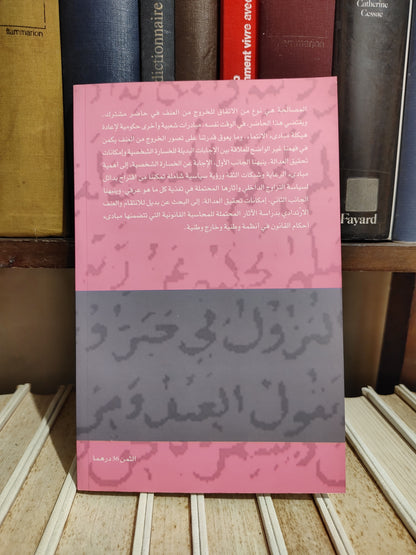 flammarion
dictionnaire
vivre avec
Catherine
flammarion
Fayard
المصالحة هي نوع من الاتفاق للخروج من العنف في حاضر مشترك.
ويقتضي هذا الحاضر، في الوقت نفسه، مبادرات شعبية وأخرى حكومية لإعادة
هيكلة مبادىء الانتماء. وما يعوق قدرتنا على تصور الخروج من العنف يكمن
في فهمنا غير الواضح للعلاقة بين الإجابات البديلة للخسارة الشخصية وإمكانات
تحقيق العدالة. ينبهنا الجانب الأول، الإجابة عن الخسارة الشخصية، إلى أهمية
مبادىء الرعاية وشبكات الثقة ورؤية سياسية شاملة تمكننا من اقتراح بدائل
لسياسة التزاوج الداخلي وآثارها المحتملة في تغذية كل ما هو عرقي. وينبهنا
الجانب الثاني، إمكانات تحقيق العدالة، إلى البحث عن بديل للانتقام والعنف
الارتدادي بدراسة الآثار المحتملة للمحاسبة القانونية التي تتضمنها مبادىء
أحكام القانون في أنظمة وطنية وخارج وطنية.
الثمن 36 درهما